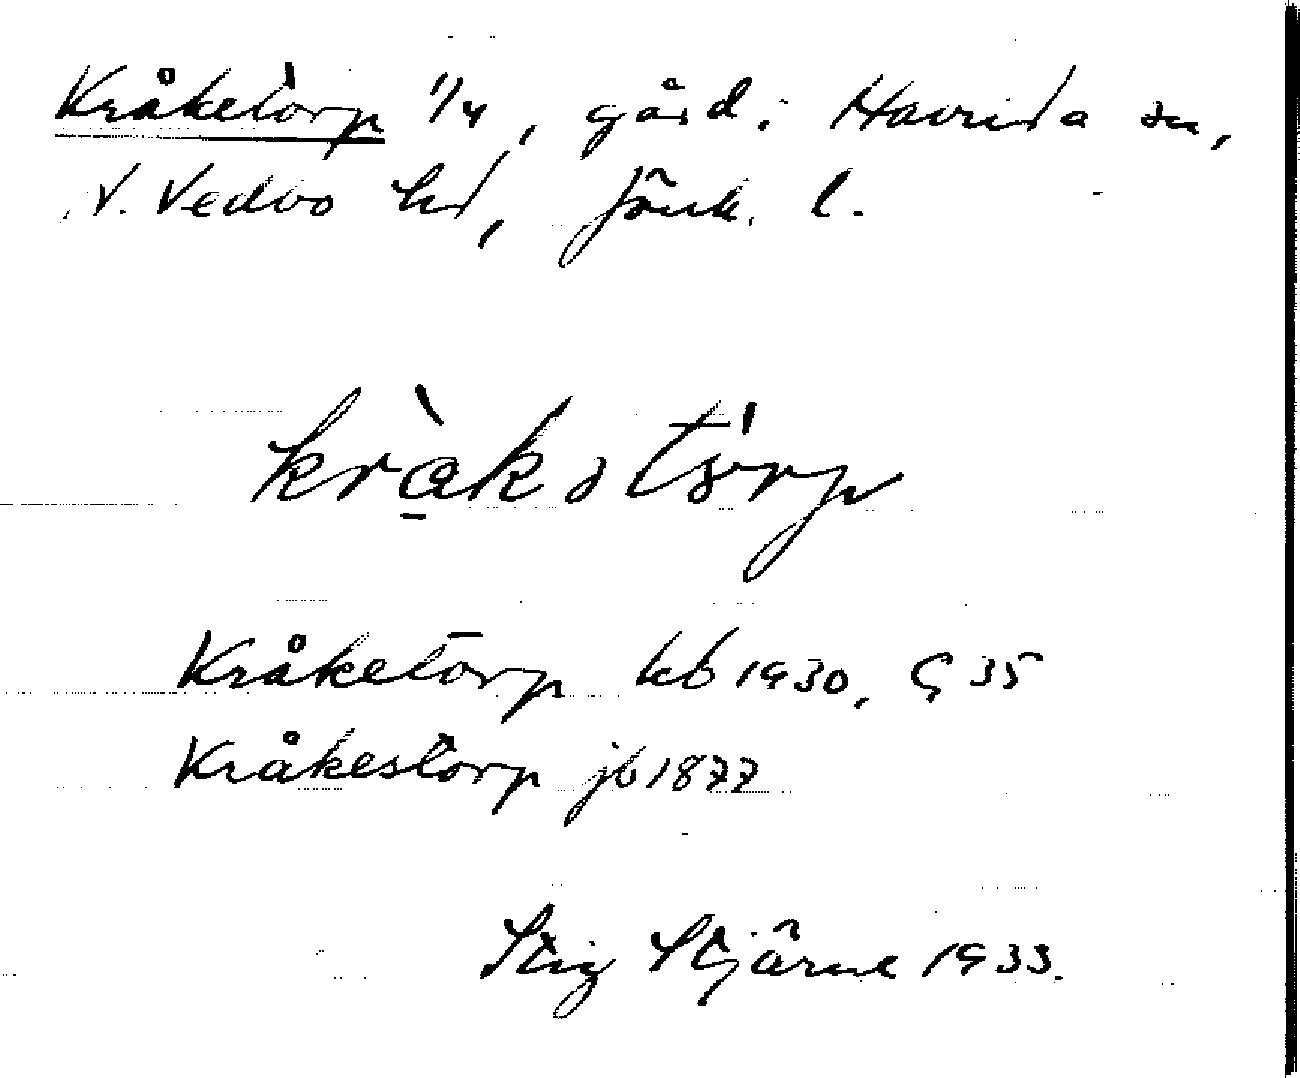 Kråketorp 1/4, gård; Haurida sn,
V. Vedbo hd, Jönk. l.
kràkstörp
Kråketorp kb 1930, G 35
Kråkestorp jb 1877
Stig Stjärne 1933.